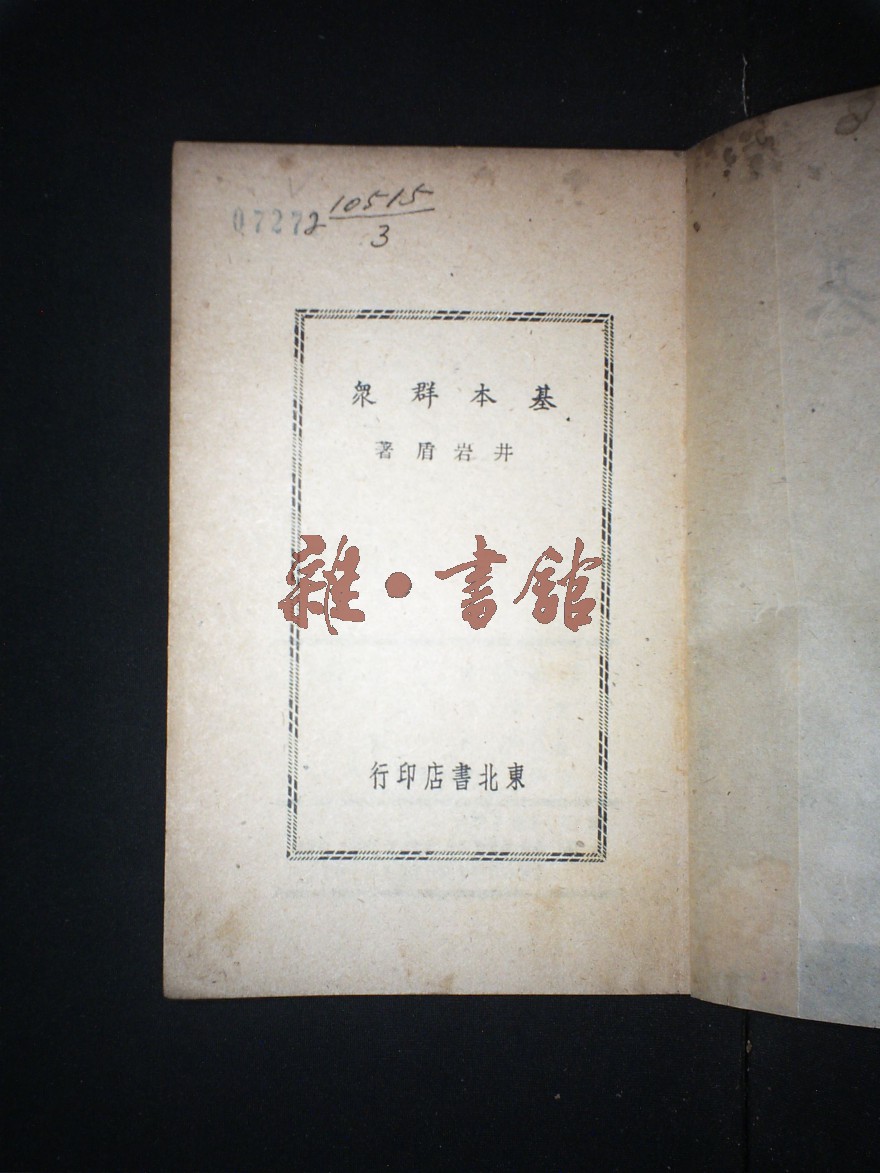 07272
10515
3
基本群眾
井岩盾著
雜·書館
東北書店印行
基